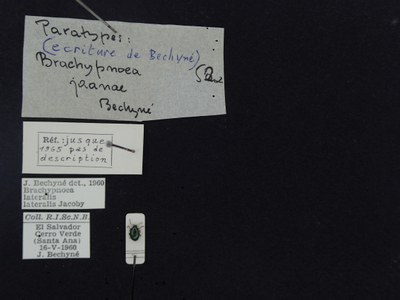 Paratypes:
(ecriture de Bechyné)
Brachypnoea
jaanae
Bechyné
Réf.: jusque
1965 pas de
description
J. Bechyné det., 1960
Brachypnoea
lateralis
lateralis Jacoby
Coll. R.I.Sc.N.B.
El Salvador
Cerro Verde
(Santa Ana)
18-V-1960
J. Bechyné